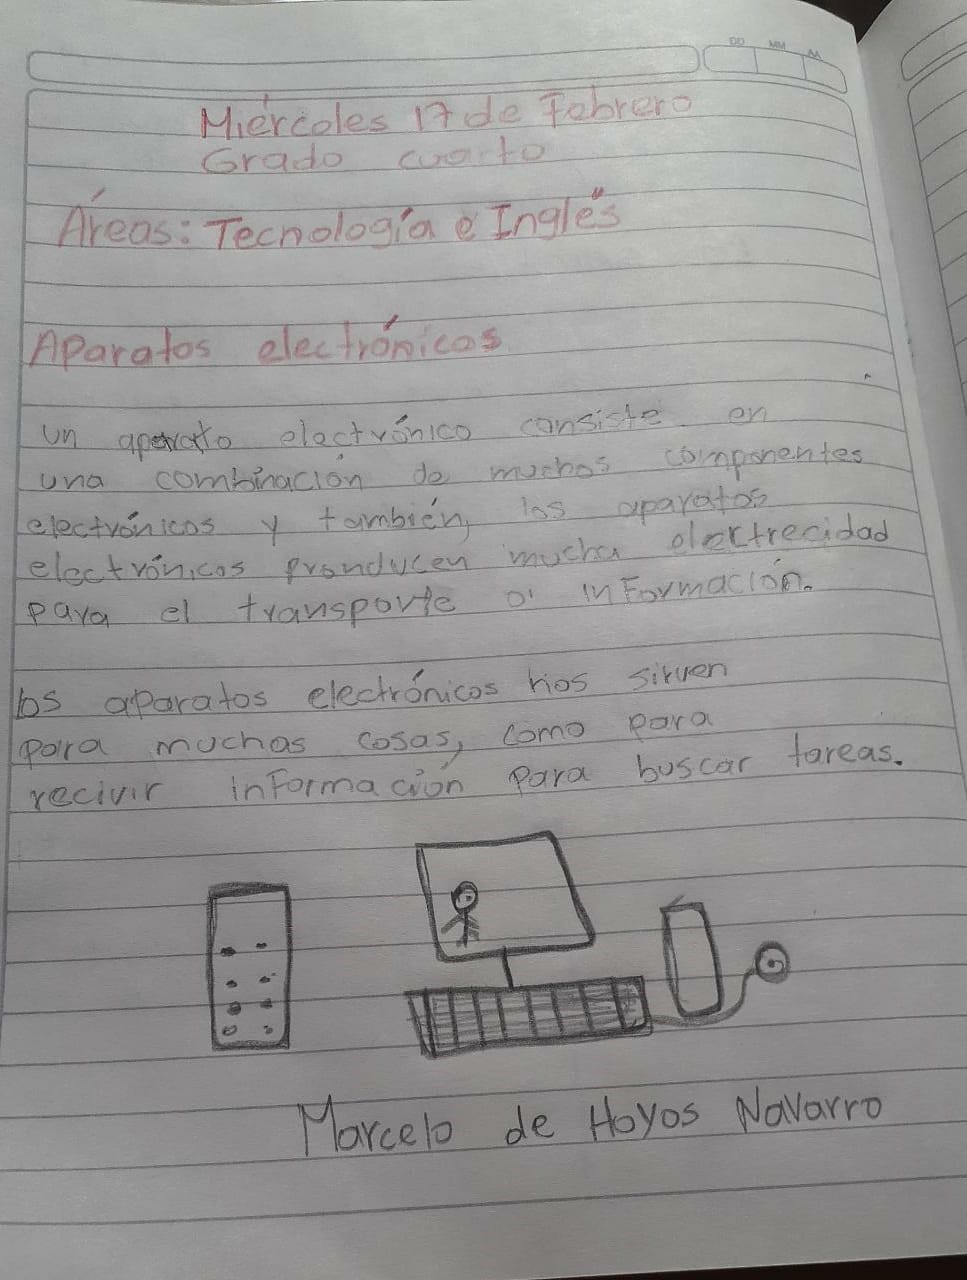 DD MM AA
Miércoles 17 de Febrero
Grado cuarto
Áreas: Tecnología e Inglés
Aparatos electrónicos
un aparato electrónico consiste en
una combinación de muchos componentes
electrónicos y también, los aparatos
electrónicos pronducen mucha electrecidad
para el transporte o informacion.
los aparatos electrónicos nos sirven
para muchas cosas, como para
recivir información para buscar tareas.
Marcelo de Hoyos Navarro